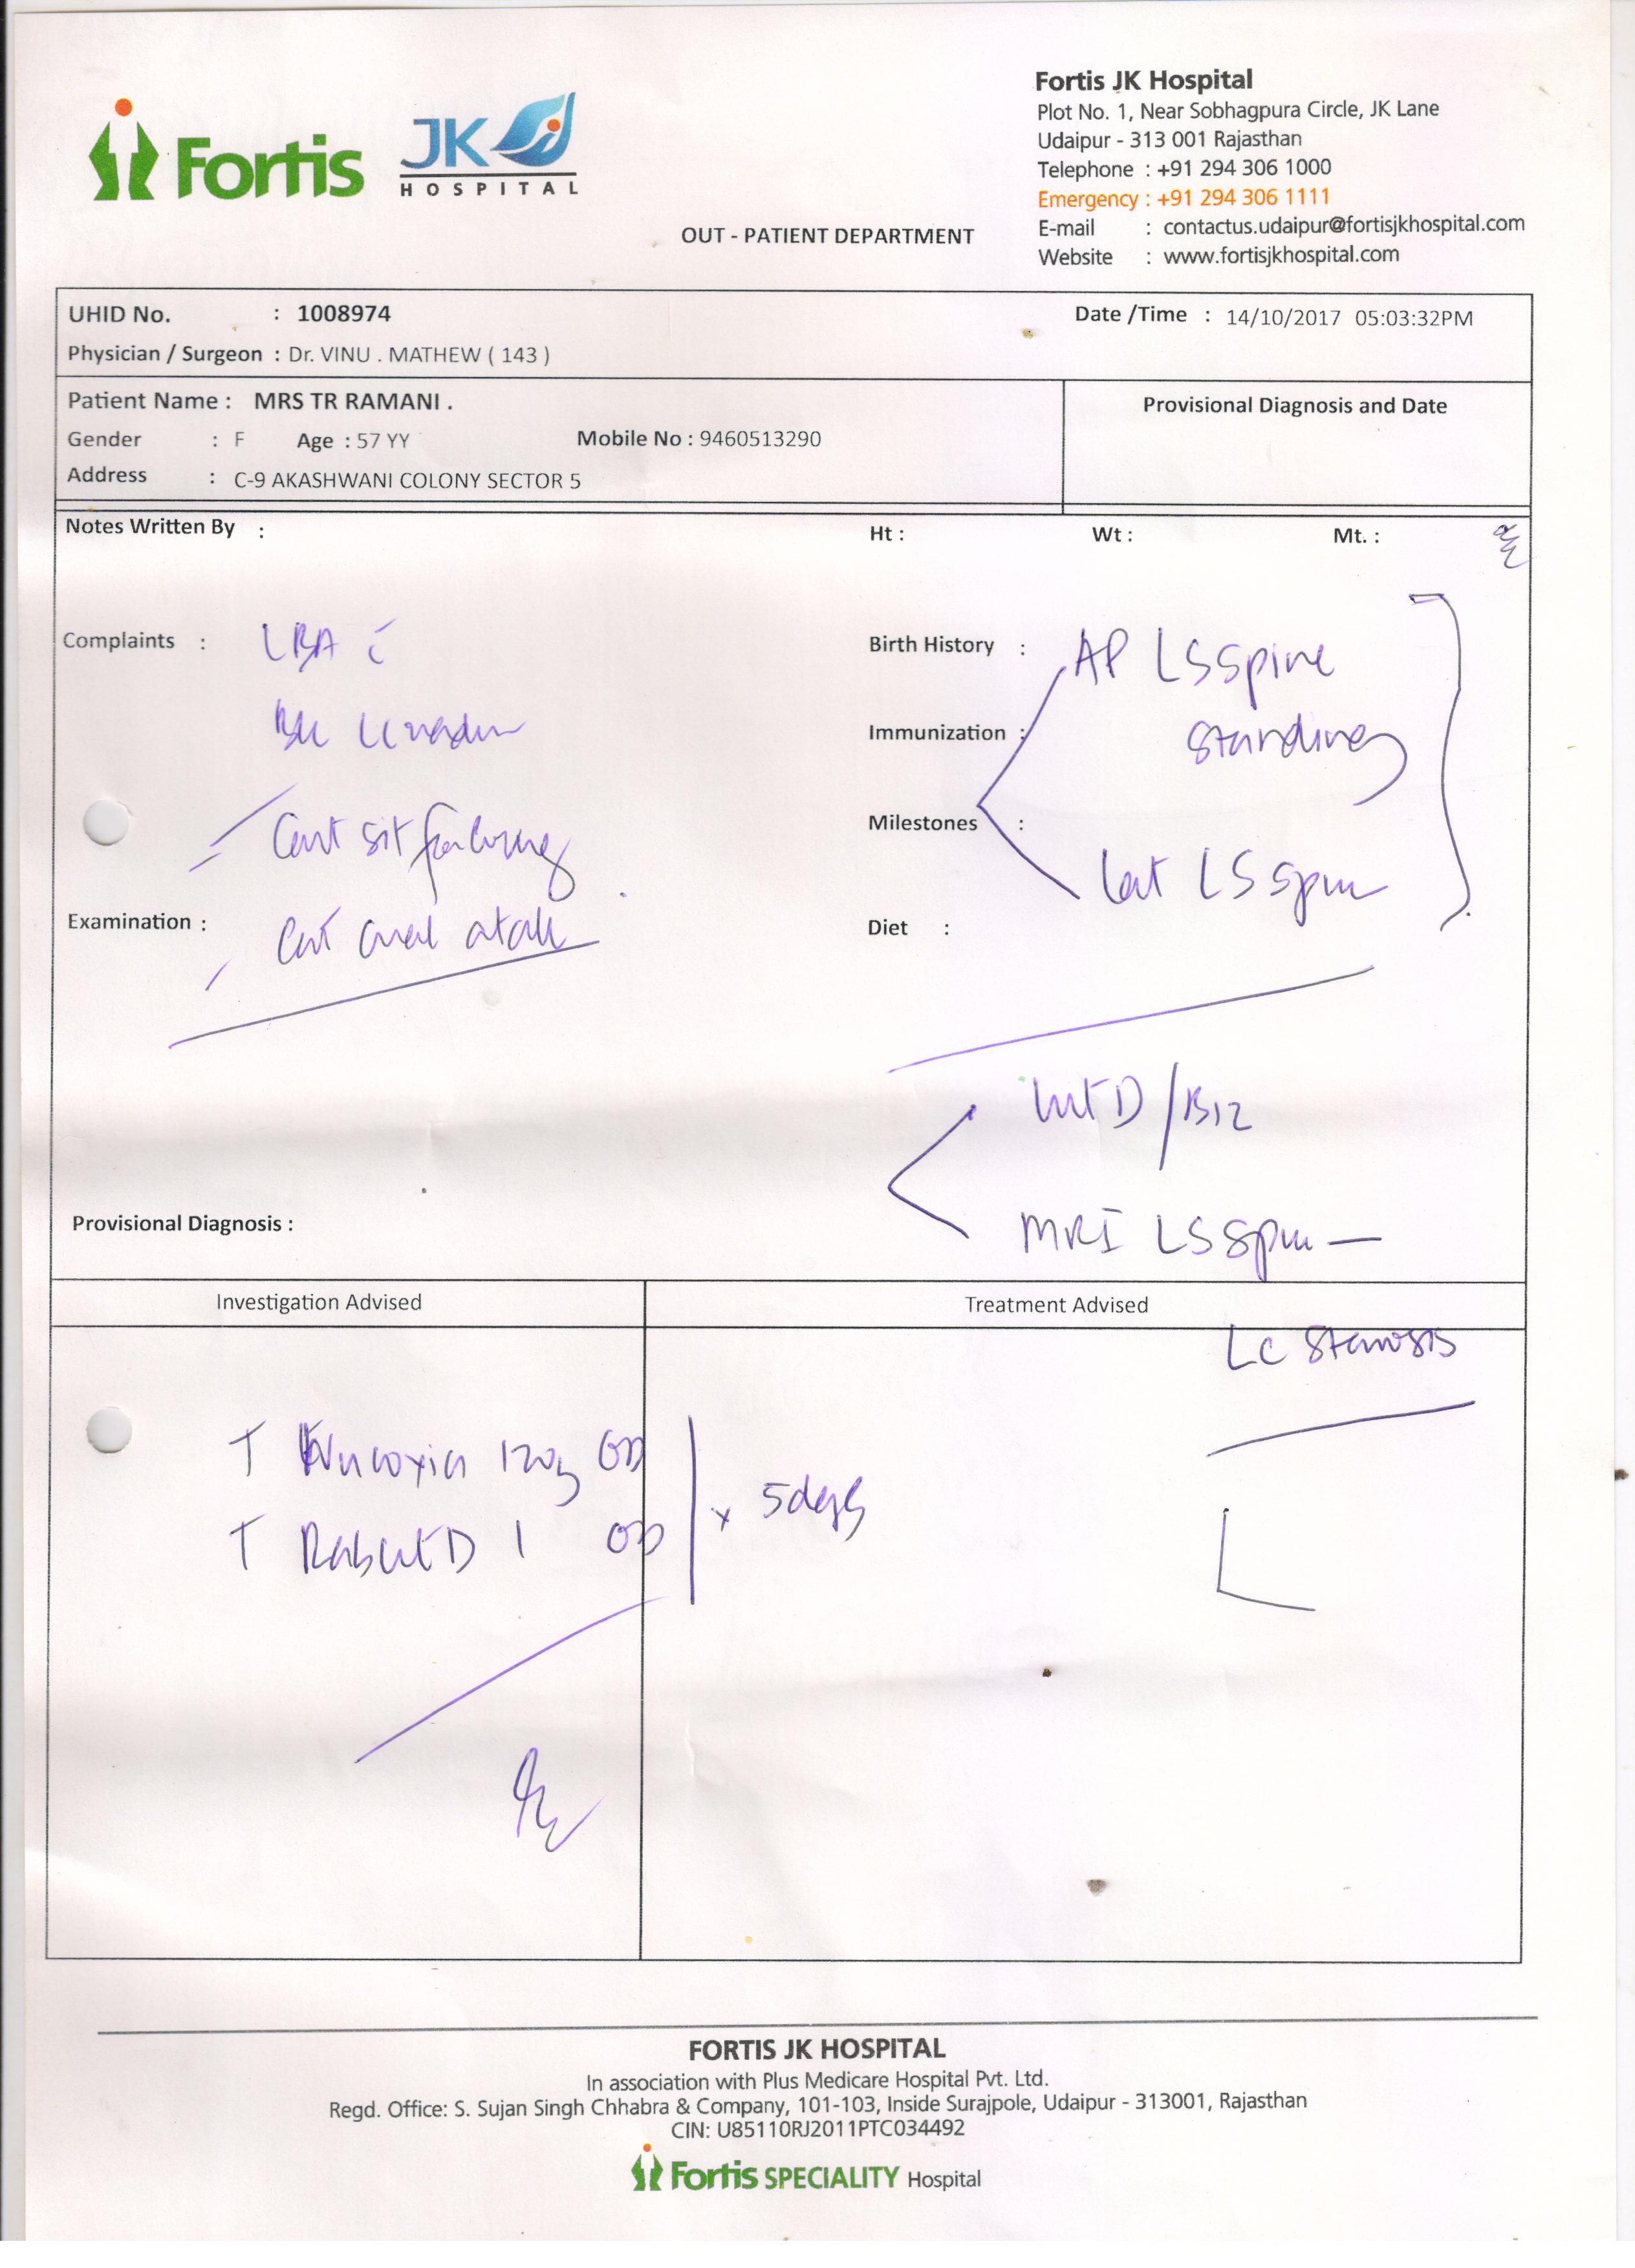 Fortis
JK
HOSPITAL
Fortis JK Hospital
Plot No. 1, Near Sobhagpura Circle, JK Lane
Udaipur - 313 001 Rajasthan
Telephone : +91 294 306 1000
Emergency : +91 294 306 1111
E-mail : contactus.udaipur@fortisjkhospital.com
Website : www.fortisjkhospital.com
OUT - PATIENT DEPARTMENT
UHID No. : 1008974
Date /Time : 14/10/2017 05:03:32PM
Physician / Surgeon : Dr. VINU . MATHEW ( 143 )
Patient Name : MRS TR RAMANI .
Gender : F Age : 57 YY Mobile No : 9460513290
Address : C-9 AKASHWANI COLONY SECTOR 5
Provisional Diagnosis and Date
Notes Written By :
Ht : Wt : Mt. :
Complaints : LBA c
Cant sit for long
Examination :
Cant at all
Birth History : AP LS Spine
Immunization : Standing
Milestones :
Lat LS spine
Diet :
Vit D / B12
MRI LS Spine —
Provisional Diagnosis :
Investigation Advised
Treatment Advised
LC Stenosis
T 120mg OD
T D 1 OD
x 5 days
FORTIS JK HOSPITAL
In association with Plus Medicare Hospital Pvt. Ltd.
Regd. Office: S. Sujan Singh Chhabra & Company, 101-103, Inside Surajpole, Udaipur - 313001, Rajasthan
CIN: U85110RJ2011PTC034492
Fortis SPECIALITY Hospital